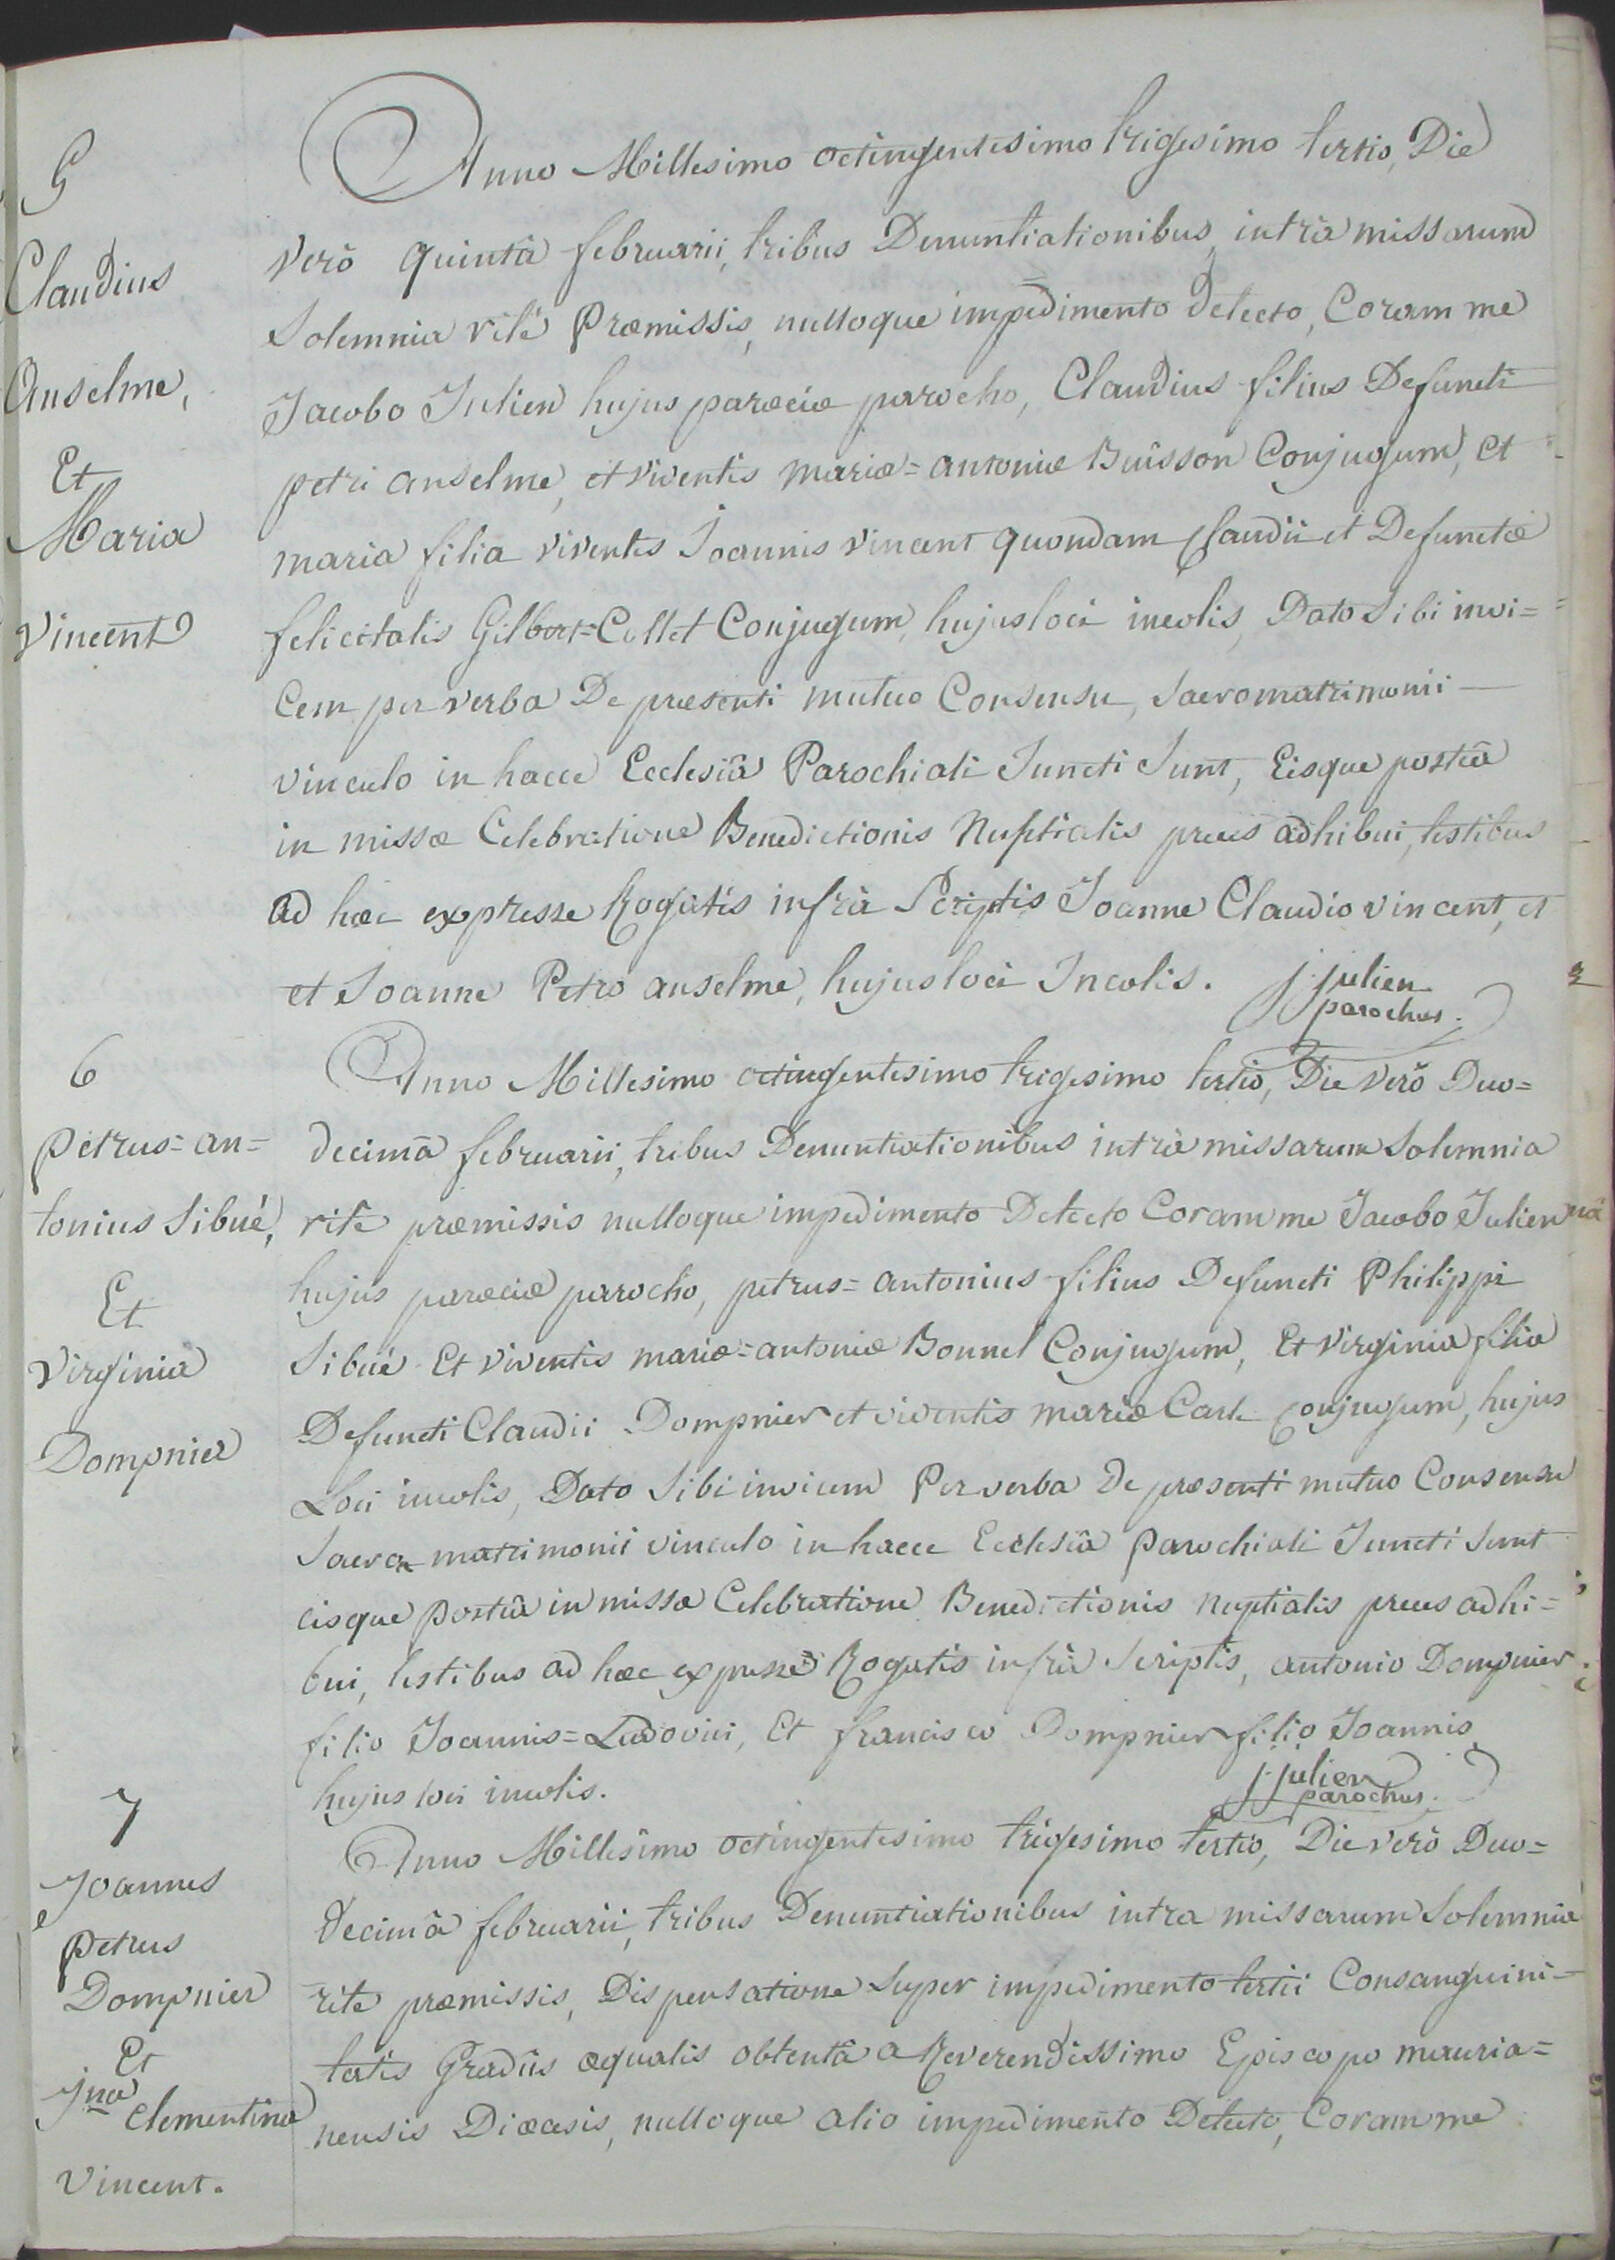 5
Claudius
Anselme,
Et
Maria
Vincent
Anno Millesimo octingentesimo trigesimo tertio, Die
verò quintâ februarii, tribus Denuntiationibus intrà missarum
Solemnia ritè Præmissis, nulloque impedimento detecto, Coram me
Jacobo Julien hujus parœciæ parocho, Claudius filius Defuncti
petri anselme, et viventis mariæ=antoniæ Buisson Conjugum, et
maria filia viventis Joannis vincent quondam Claudii et Defunctæ
felicitatis Gilbert=Collet Conjugum, hujus loci incolis, Dato Sibi invi=
Cem per verba De præsenti mutuo Consensu, Sacro matrimonii
vinculo in hacce Ecclesiâ Parochiali Juncti Sunt, Eisque posteà
in missæ Celebratione Benedictionis Nuptialis preces adhibui, testibus
ad hæc expresse Rogatis infrà Scriptis Joanne Claudio vincent, et
et Joanne Petro anselme, hujus loci Incolis. j. julien
parochus.
6
petrus=an=
tonius Sibué,
Et
Virginia
Dompnier
Anno Millesimo octingentesimo trigesimo tertio, Die verò Duo=
decimâ februarii, tribus Denuntiationibus intrà missarum Solemnia
ritè præmissis nulloque impedimento Detecto Coram me Jacobo Julien
hujus parœciæ parocho, petrus=antonius filius Defuncti Philippi
Sibué Et viventis mariæ=antoniæ Bonnel Conjugum, Et virginia filia
Defuncti Claudii Dompnier et viventis mariæ Carle conjugum, hujus
Loci incolis, Dato Sibi invicem Per verba De præsenti mutuo Consensu
Sacro matrimonii vinculo in hacce Ecclesiâ parochiali Juncti Sunt
eisque posteà in missæ Celebratione Benedictionis nuptialis preces adhi=
bui, testibus ad hæc expressè Rogatis infrà Scriptis, antonio Dompnier
filio Joannis=Ludovici, Et francisco Dompnier filio Joannis,
hujus loci incolis. j. julien
parochus.
7
Joannes
petrus
Dompnier
Et
Jna
Clementina
Vincent.
Anno Millesimo octingentesimo trigesimo tertio, Die verò Duo=
decimâ februarii, tribus Denuntiationibus intra missarum Solemnia
rite præmissis, Dispensatione Super impedimento tertii Consanguini=
tatis Gradûs æqualis obtentâ a Reverendissimo Episcopo mauria=
nensis Diœcesis, nulloque alio impedimento Detecto, Coram me